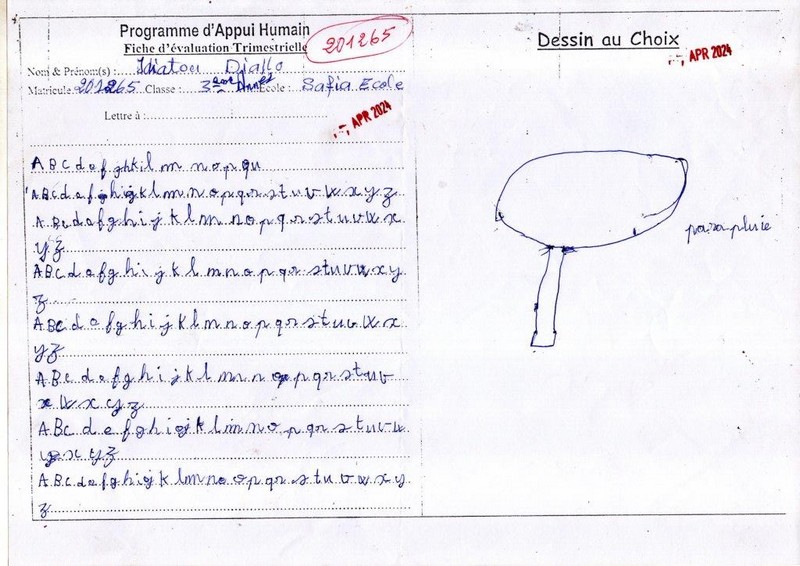 Programme d'Appui Humain
Fiche d'évaluation Trimestrielle
201265
Nom & Prénom(s) : Idiatou Diallo
Matricule 201265 Classe : 3 École : Safia Ecole
Lettre à :
APR 2024
A B C d e f g h k i l m n o p q u
A B C d e f g h i g k l m n o p q r s t u v w x y z
A B C d e f g h i j k l m n o p q r s t u v w x
y z
A B C d e f g h i j k l m n o p q r s t u v w x y
z
A B C d e f g h i j k l m n o p q r s t u v w x
y z
A B c d e f g h i j k l m n o p q r s t u v
x w x c y z
A B c d e f g h i g k l m n o p q r s t u v w
x y z
A B C d e f g h i j k l m n o o p q r s t u v w x y
z
Dessin au Choix
APR 2024
parapluie